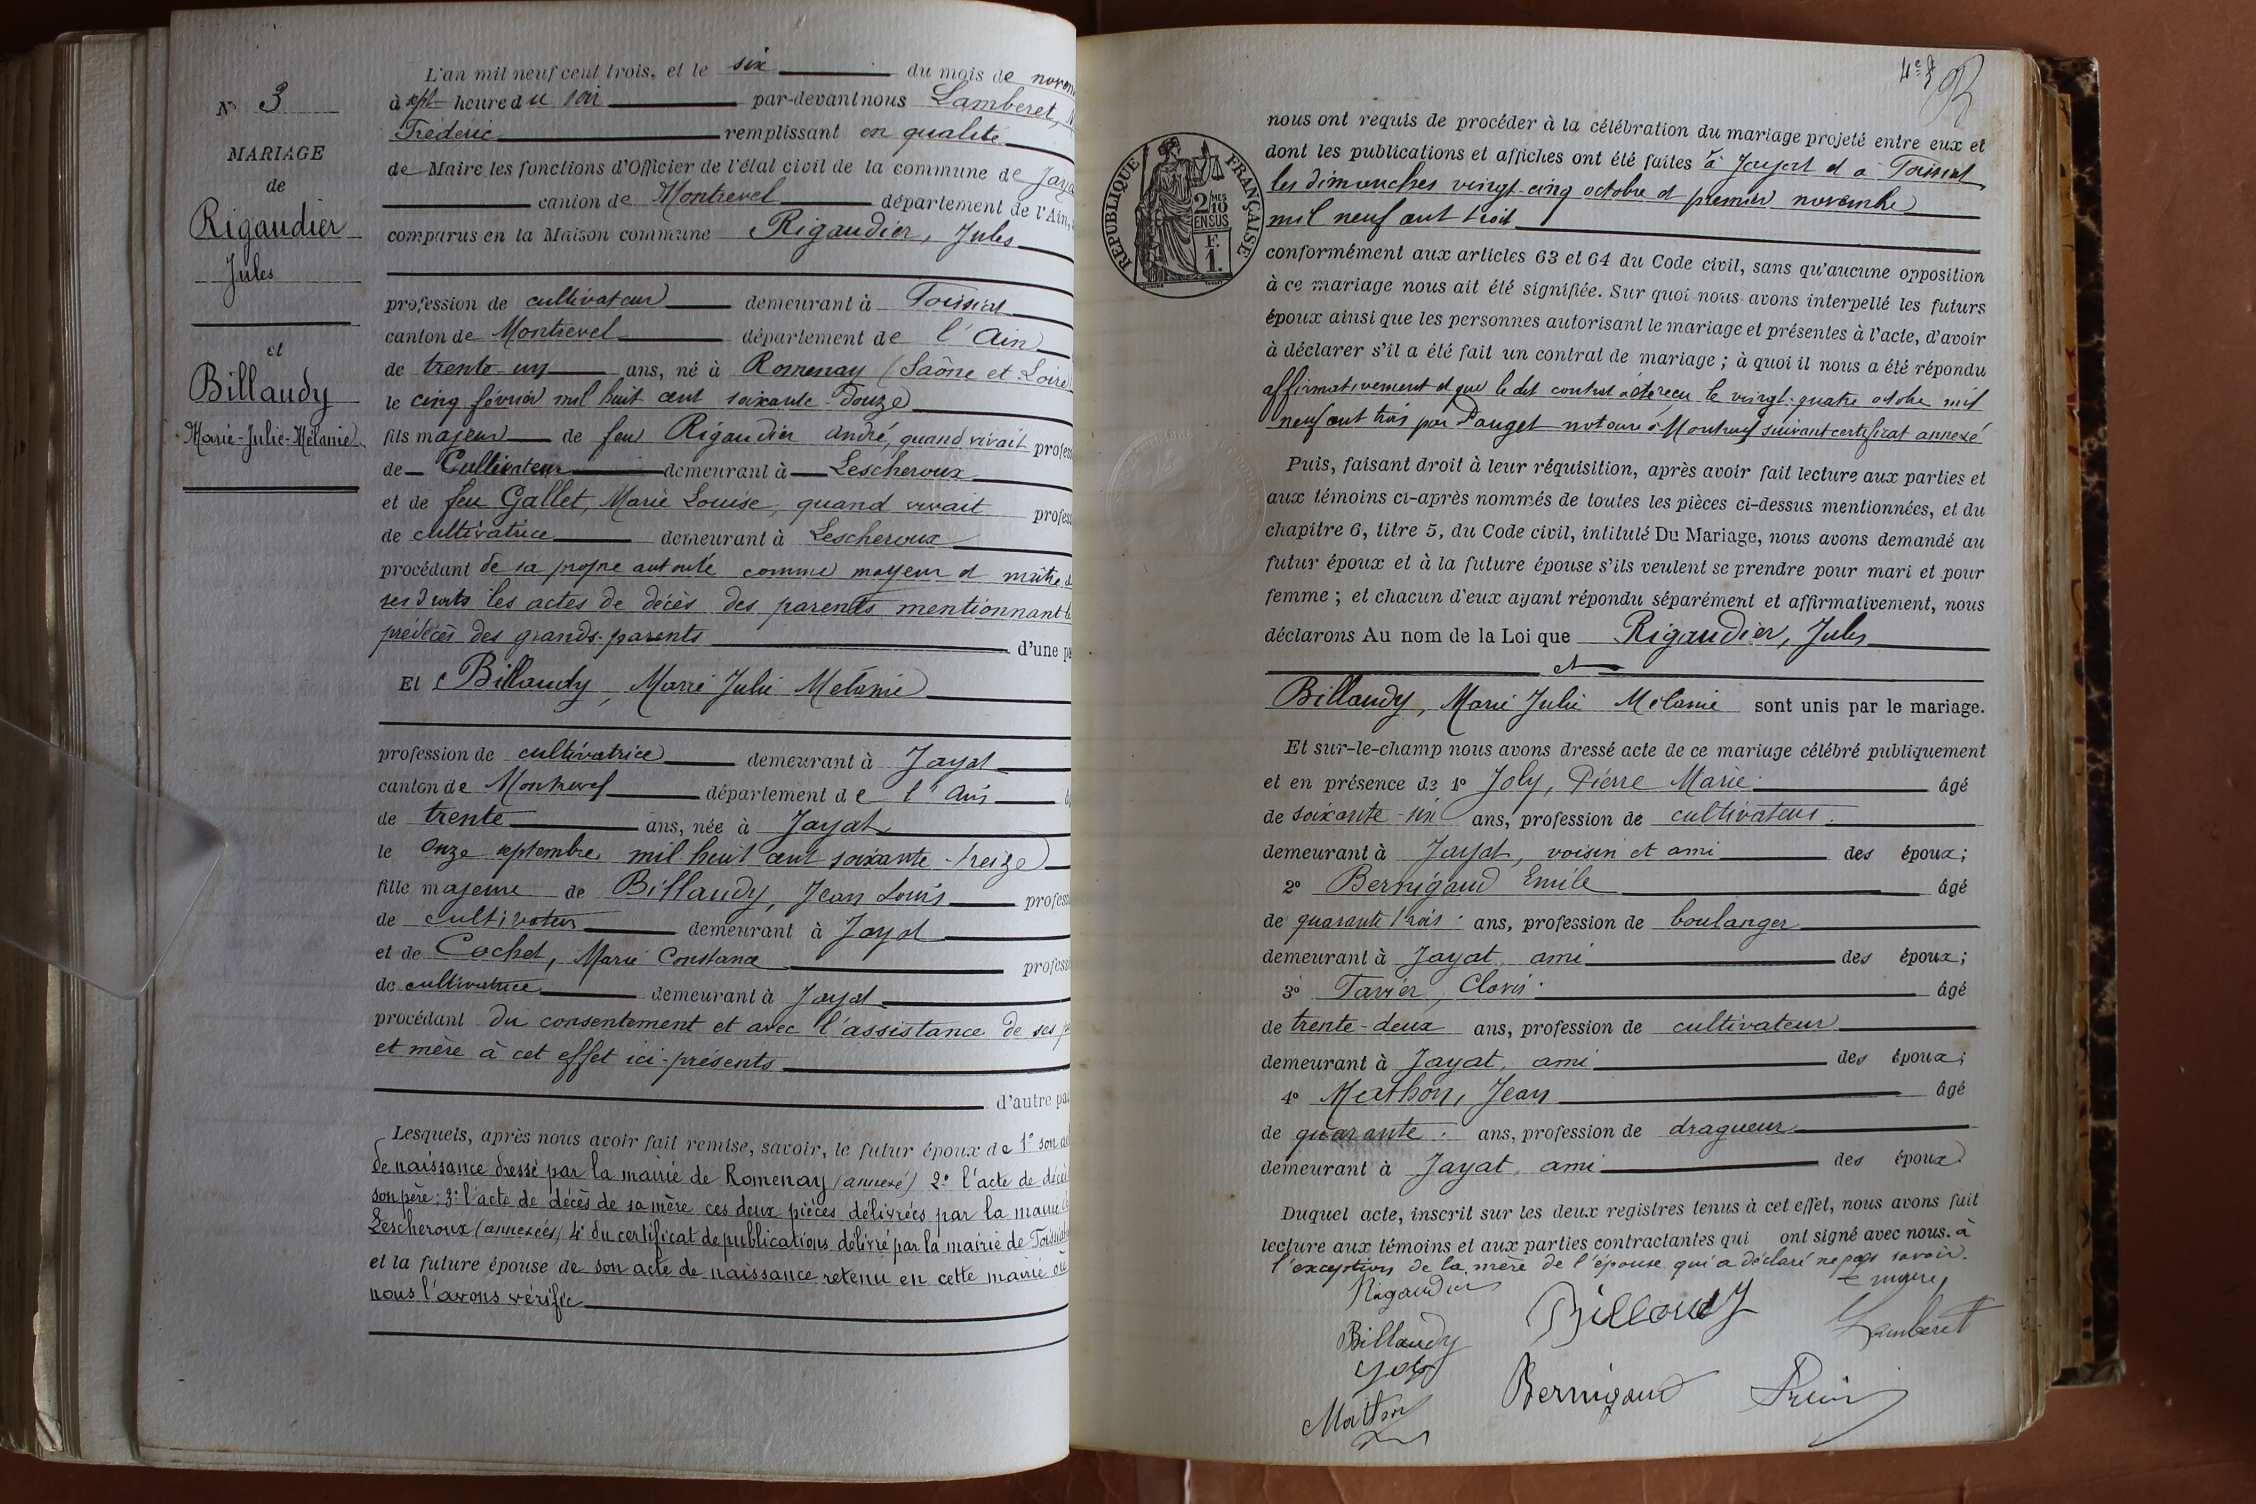 N° 3
MARIAGE
de
Rigaudier
Jules
et
Billaudy
Marie-Julie-Mélanie
L'an mil neuf cent trois, et le six du mois de novem
à sept heure du soir par-devant nous Lamberet,
Frédéric remplissant en qualité
de Maire les fonctions d'Officier de l'état civil de la commune de Jaya
canton de Montrevel département de l'Ain,
comparus en la Maison commune Rigaudier, Jules
profession de cultivateur demeurant à Foissiat
canton de Montrevel département de l'Ain
de trente un ans, né à Romenay (Saône et Loire)
le cinq février mil huit cent soixante-douze
fils majeur de feu Rigaudier André, quand vivait profess
de Cultivateur demeurant à Lescheroux
et de feu Gallet, Marie Louise, quand vivait profess
de cultivatrice demeurant à Lescheroux
procédant de sa propre autorité comme majeur et maître d
ses droits les actes de décès des parents mentionnant le
prédécès des grands-parents d'une pa
Et Billaudy, Marie Julie Mélanie
profession de cultivatrice demeurant à Jayat
canton de Montrevel département de l'Ain
de trente ans, née à Jayat
le onze septembre mil huit cent soixante-treize
fille majeure de Billaudy, Jean Louis profess
de cultivateur demeurant à Jayat
et de Cochet, Marie Constance profess
de cultivatrice demeurant à Jayat
procédant du consentement et avec l'assistance de ses p
et mère à cet effet ici-présents
d'autre par
Lesquels, après nous avoir fait remise, savoir, le futur époux de 1° son ac
de naissance dressé par la mairie de Romenay (annexé) 2° l'acte de décès
son père; 3° l'acte de décès de sa mère ces deux pièces délivrées par la mairie de
Lescheroux (annexées) 4° du certificat de publications délivré par la mairie de Foissiat
et la future épouse de son acte de naissance retenu en cette mairie où
nous l'avons vérifié
4e
RÉPUBLIQUE FRANÇAISE
2/10 MES
EN SUS
1 F.
nous ont requis de procéder à la célébration du mariage projeté entre eux et
dont les publications et affiches ont été faites à Jayat et à Foissiat
les dimanches vingt-cinq octobre et premier novembre
mil neuf cent trois
conformément aux articles 63 et 64 du Code civil, sans qu'aucune opposition
à ce mariage nous ait été signifiée. Sur quoi nous avons interpellé les futurs
époux ainsi que les personnes autorisant le mariage et présentes à l'acte, d'avoir
à déclarer s'il a été fait un contrat de mariage; à quoi il nous a été répondu
affirmativement et que le dit contrat a été reçu le vingt-quatre octobre mil
neuf cent trois par Pauget notaire à Montrevel suivant certificat annexé
Puis, faisant droit à leur réquisition, après avoir fait lecture aux parties et
aux témoins ci-après nommés de toutes les pièces ci-dessus mentionnées, et du
chapitre 6, titre 5, du Code civil, intitulé Du Mariage, nous avons demandé au
futur époux et à la future épouse s'ils veulent se prendre pour mari et pour
femme; et chacun d'eux ayant répondu séparément et affirmativement, nous
déclarons Au nom de la Loi que Rigaudier, Jules
et
Billaudy, Marie Julie Mélanie sont unis par le mariage.
Et sur-le-champ nous avons dressé acte de ce mariage célébré publiquement
et en présence de 1° Joly, Pierre Marie âgé
de soixante-six ans, profession de cultivateur
demeurant à Jayat, voisin et ami des époux;
2° Bernigaud Emile âgé
de quarante trois ans, profession de boulanger
demeurant à Jayat, ami des époux;
3° Tavier, Clovis âgé
de trente-deux ans, profession de cultivateur
demeurant à Jayat, ami des époux;
4° Mathon, Jean âgé
de quarante ans, profession de dragueur
demeurant à Jayat, ami des époux
Duquel acte, inscrit sur les deux registres tenus à cet effet, nous avons fait
lecture aux témoins et aux parties contractantes qui ont signé avec nous. à
l'exception de la mère de l'épouse qui a déclaré ne pas savoir.
Rigaudier
Billaudy
Billaudy
Lamberet
Joly
Bernigaud
Mathon